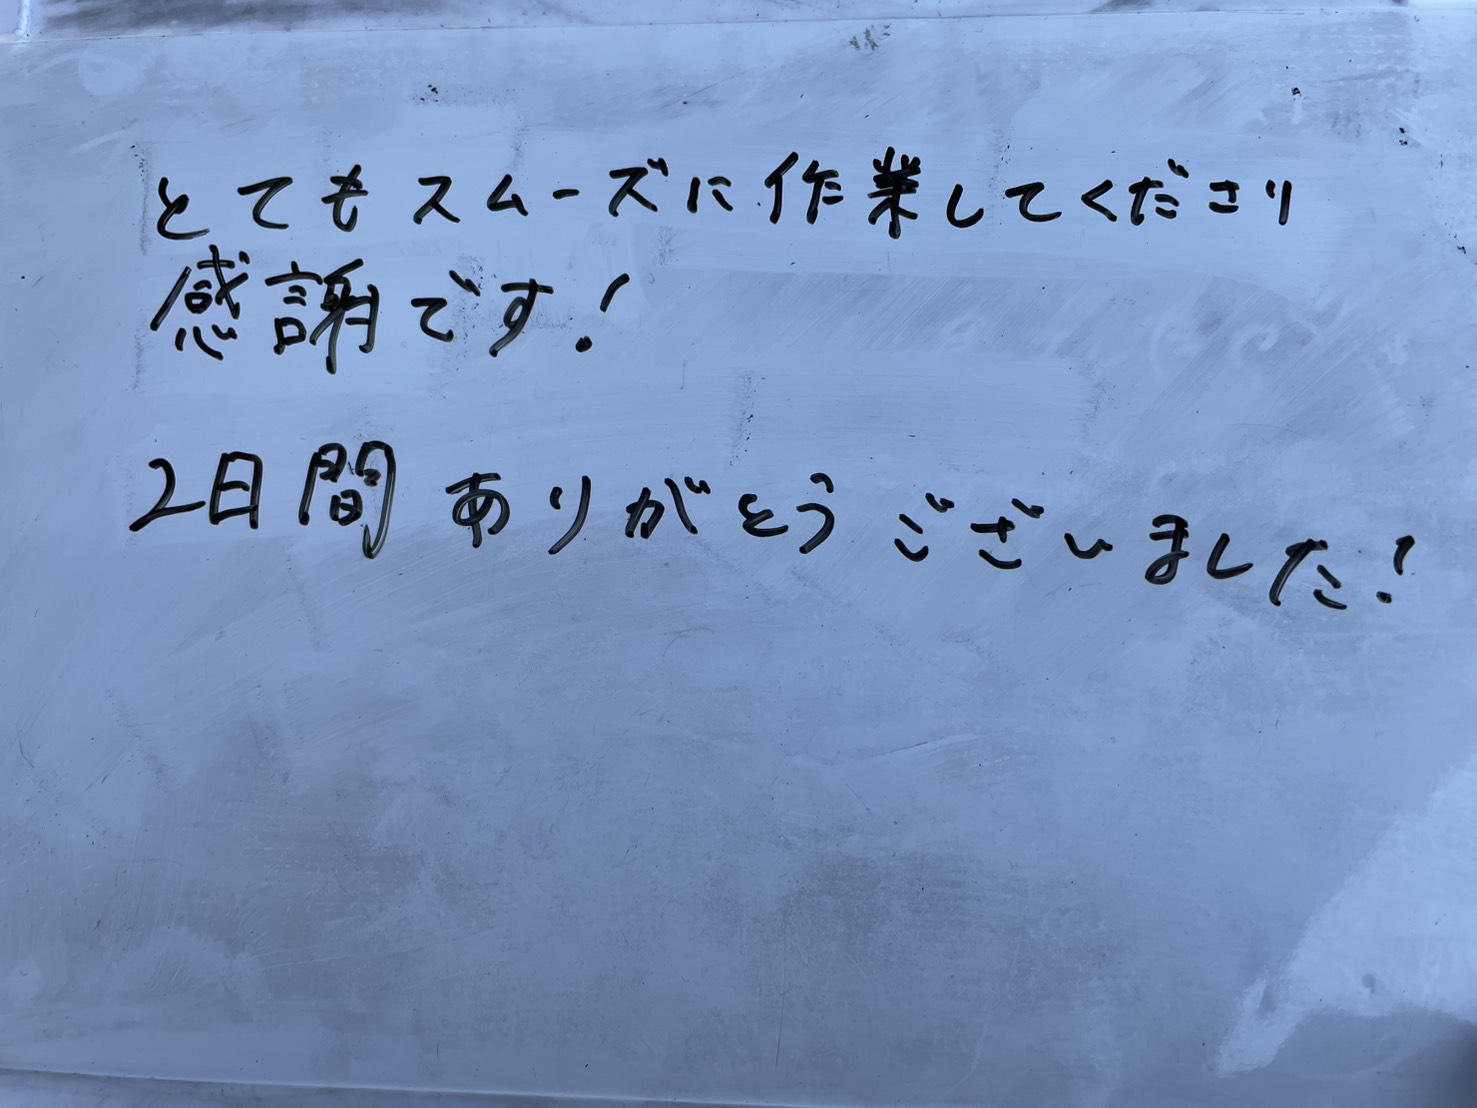 とてもスムーズに作業してくださり
感謝です!
2日間 ありがとう ございました!